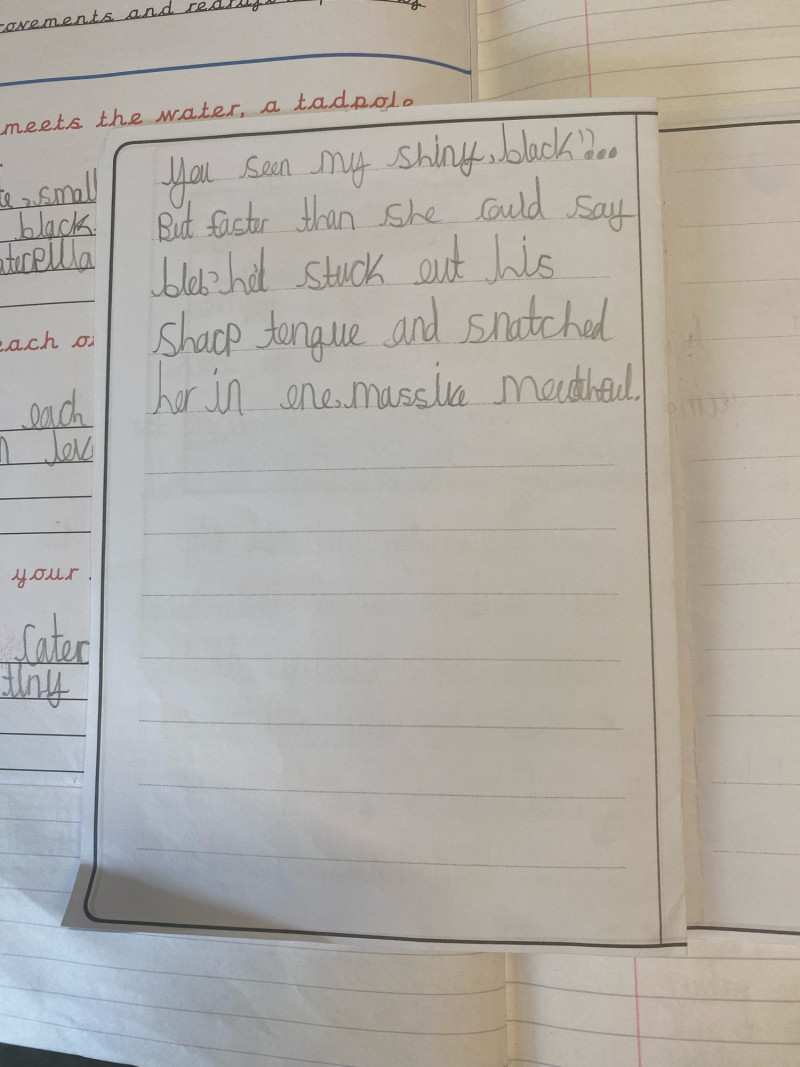 ovements and
meets the water, a tadpole
small
black
aterpilla
each
each
your
later
tiny
You seen my shiny, black"?...
But faster than she could say
bleb? he'd stuck out his
sharp tongue and snatched
her in one, massive mouthful.